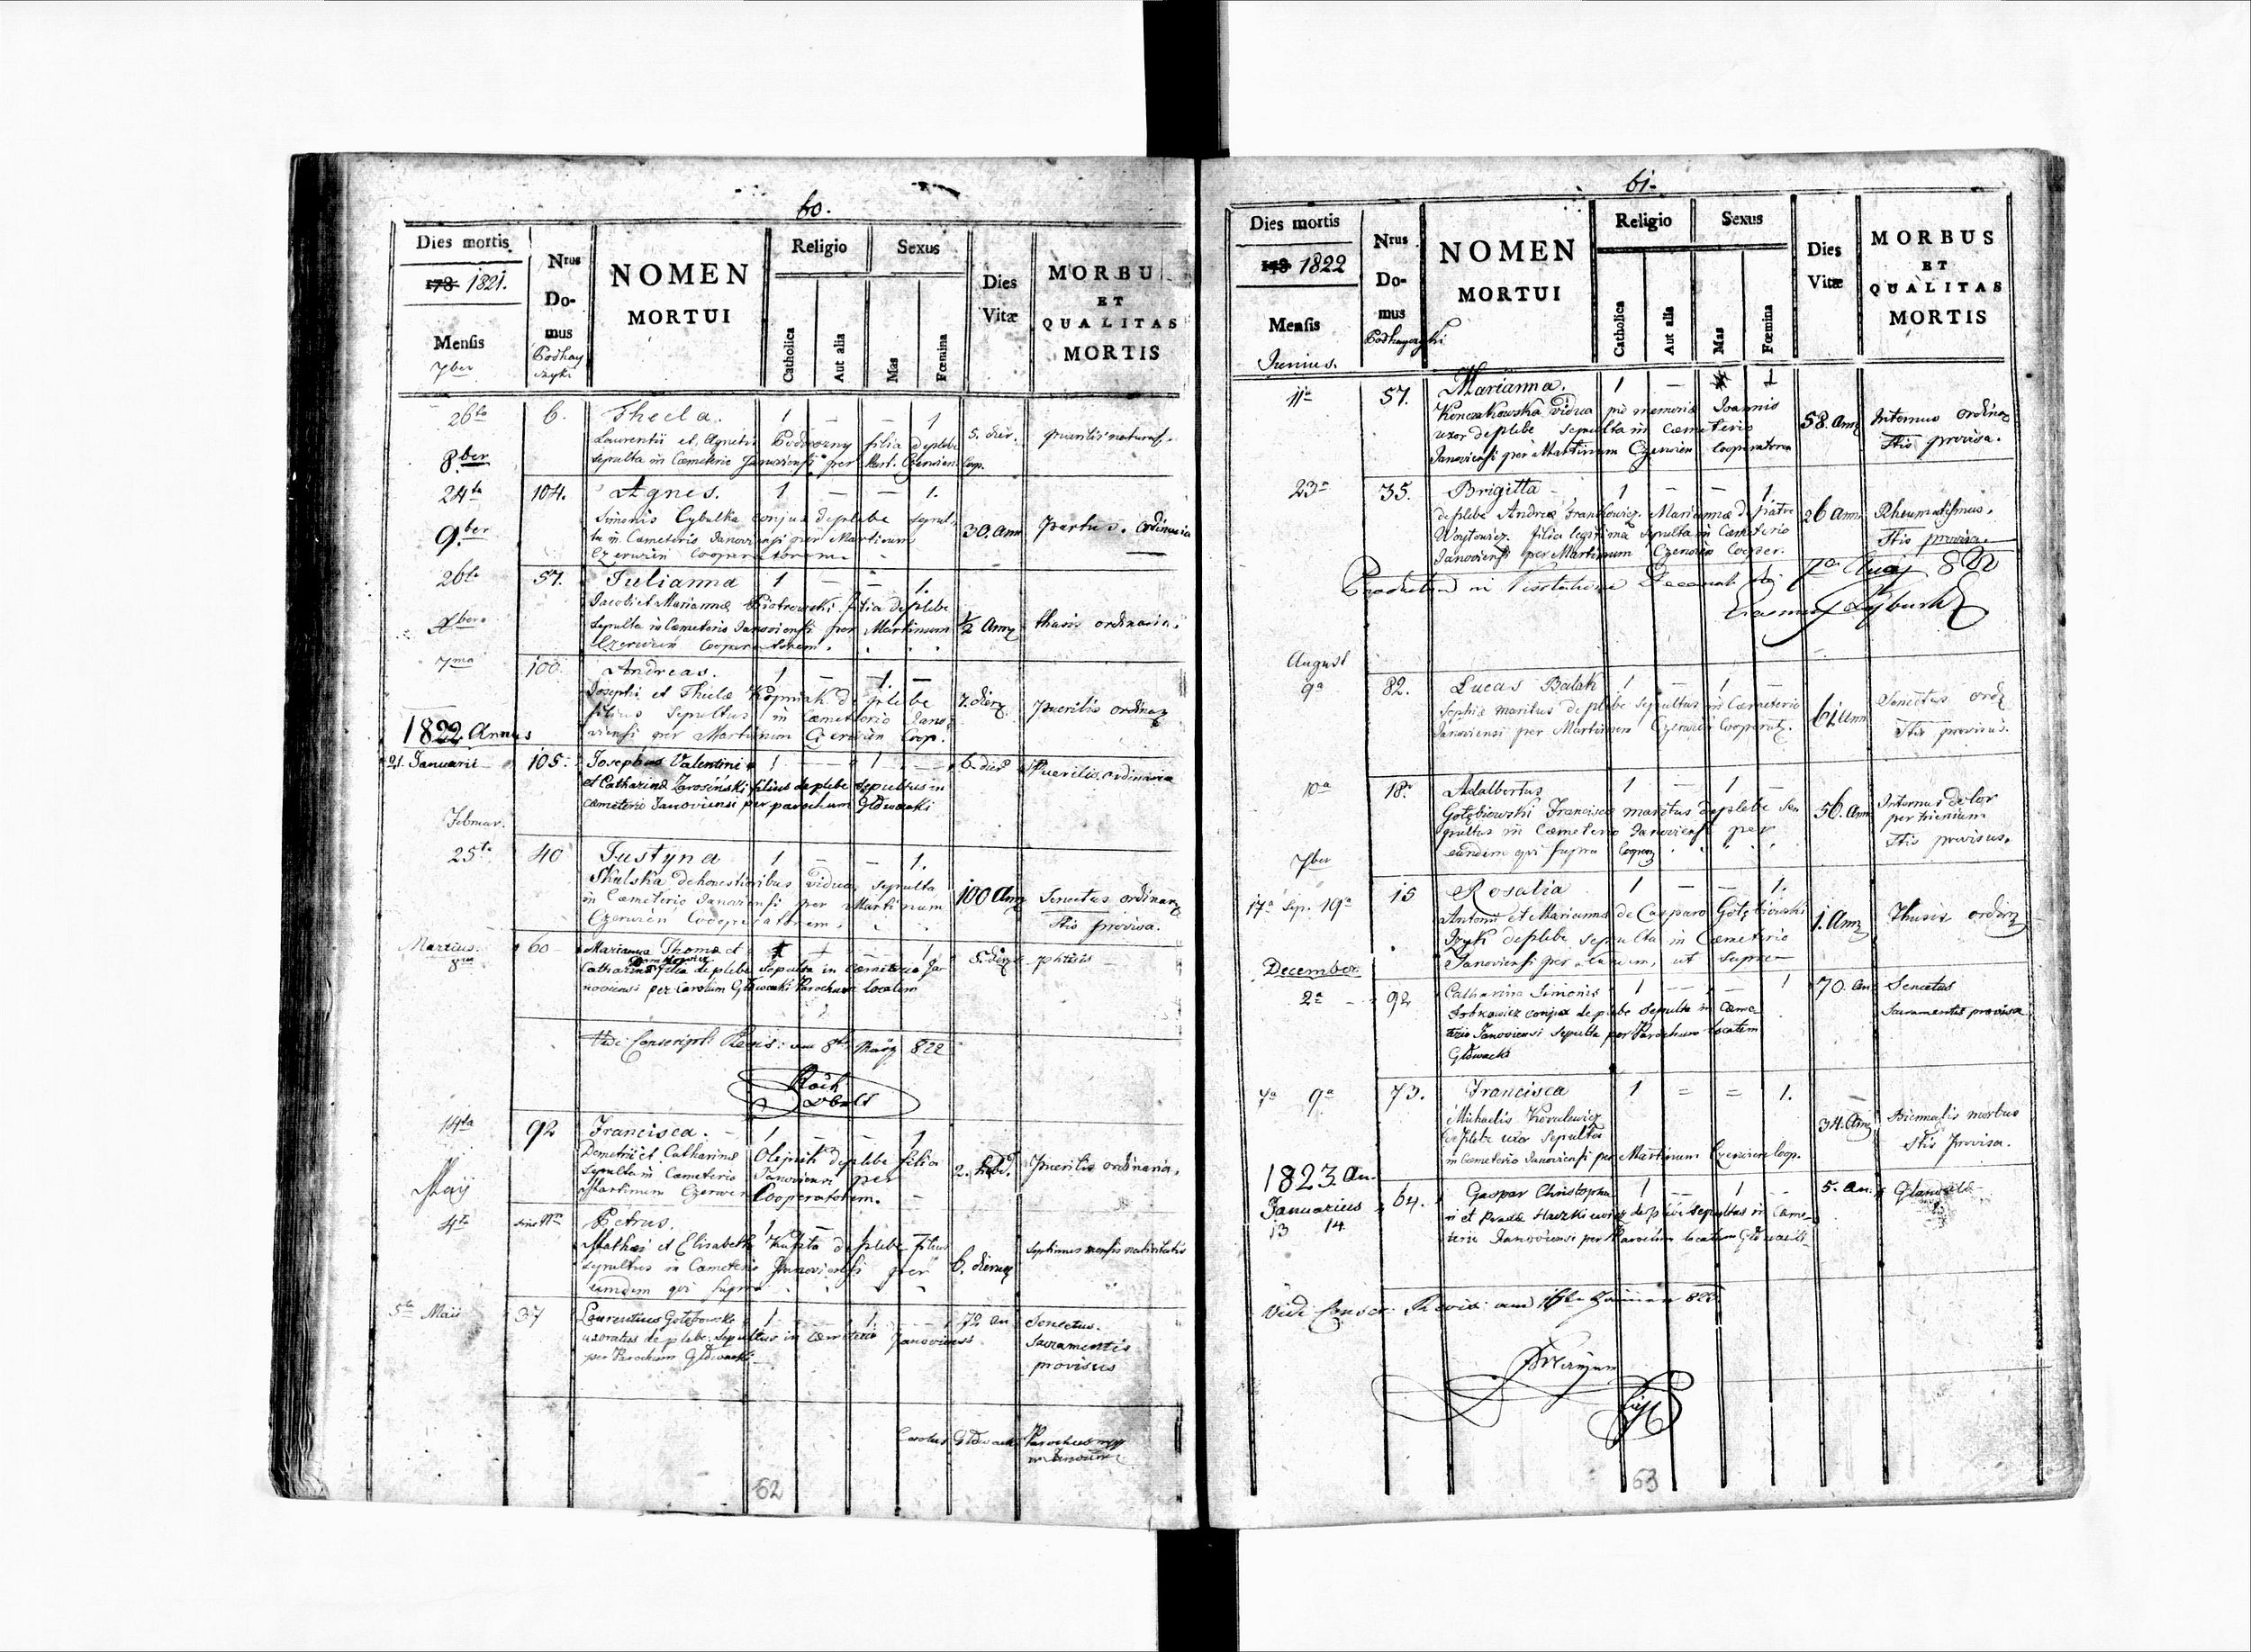 60.
Dies mortis
178 1821.
Mensis
7ber
Nrus
Do-
mus
Podhay
czyki
NOMEN
MORTUI
Religio
Catholica
Aut alia
Sexus
Mas
Fœmina
Dies
Vitæ
MORBU
ET
QUALITAS
MORTIS
26ta 6. Thecla. 1 — — 1
Laurentii et Agnetis filia de plebe 5. dier.
sepulta in Cœmeterio Janoviensi per Mart. Czerwien Coop.
8ber
24ta 104. Agnes. 1 — — 1.
Simonis Cybulka conjux de plebe sepul- 30. Ann partus. ordinaria
ta in Cœmeterio Janoviensi per Martinum
Czerwien Cooperatorem
9ber
26ta 57. Julianna 1 — — 1.
Jacobi et Mariannæ Piotrowski filia de plebe
sepulta in Cœmeterio Janoviensi per Martinum ½ Anni thusis ordinaria.
Czerwien Cooperatorem.
7ma 100. Andreas. 1 — 1. —
Josephi et Theclæ de plebe 7. dierum puerilis ordinar
filius sepultus in Cœmeterio Jano
viensi per Martinum Czerwien Coop.
1822 Annus
21. Januarii 105. Josephus Valentini 1 — 1 — 6. dier Puerilis ordinaria
et Catharinæ Zarosinski filius de plebe sepultus in
cœmeterio Janoviensi per parochum Głowacki
Februar.
25ta 40 Justyna 1 — — 1.
Skulska de honestioribus vidua sepulta
in Cœmeterio Janoviensi per Martinum 100 Ann Senectus ordinar
Czerwien Cooperatorem. Stis provisa.
Martius.
8va 60 Marianna Thomæ et 1 5. dier phtisis
Catharinæ filia de plebe sepulta in cœmeterio Ja
noviensi per Carolum Głowacki Parochum Localem
Vidi Conscript: Revis: am 8ten März 822
14ta 92 Francisca. 1 — — 1
Demetrii et Catharinæ Olejnik de plebe filia
sepulta in Cœmeterio Janoviensi per 2. hebd. Puerilis ordinaria.
Martinum Czerwien Cooperatorem.
Maij
4ta sine Nro Petrus. 1
Mathæi et Elisabeth Kuszta de plebe filius Septimus mensis nativitatis
sepultus in Cœmeterio Janoviensi per 6. dierum
eundem qui supra
5ta Maii 37 Laurentius Gołębowski 1 — 1 — 72 an Senectus.
uxoratus de plebe. Sepultus in cœmeterio Janoviensi Sacramentis
per Parochum Głowacki provisus
Carolus Głowacki Parochus
62
61.
Dies mortis
178 1822
Mensis
Junius.
Nrus
Do-
mus
Podhayczyki
NOMEN
MORTUI
Religio
Catholica
Aut alia
Sexus
Mas
Fœmina
Dies
Vitæ
MORBUS
ET
QUALITAS
MORTIS
11a 57. Marianna. 1 — 1
vidua piæ memoriæ Joannis
uxor de plebe sepulta in Cœmeterio 58. Ann Internus ordinar
Janoviensi per Martinum Czerwien Cooperatorem Stis provisa.
23a 35. Brigitta 1 — — 1.
de plebe Andreæ Frankowicz Mariannæ d patre 26 Ann Rheumatismus.
Woytowicz filia legitima sepulta in Cœmeterio Stis provisa.
Janoviensi per Martinum Czerwien Cooper.
Productum in Visitatione Decanali die 7a Augj 822
August
9a 82. Lucas Balak 1 — 1 —
Sophiæ maritus de plebe sepultus in Cœmeterio 61 Ann Senectus ordi
Janoviensi per Martinum Czerwien Cooperat. Stis provisus.
10a 18. Adalbertus 1 — 1 —
Gołębiowski Franciscæ maritus de plebe se 56. Ann Internus dolor
pultus in Cœmeterio Janoviensi per per trienium
eundem qui supra Cooper Stis provisus.
7ber
17a Sep. 19a 15 Rosalia 1 — — 1.
Antonii et Mariannæ de Casparo Gołębiowski
Izyk de plebe sepulta in Cœmeterio 1. Ann Thusis ordinr
Janoviensi per eundem, ut supra
December
2a 92 Catharina Simonis 1 — — 1 70. an Senectus
conjux de plebe sepulta in Cœme- Sacramentis provisa
terio Janoviensi sepulta per Parochum Localem
Głowacki
7a 9a 73. Francisca 1 = = 1.
Michaelis Kowalewicz 34. Ann Biennalis morbus
de plebe uxor sepulta Stis provisa.
in Cœmeterio Janoviensi per Martinum Czerwien Coop.
1823 An.
Januarius
13 14 64. Gaspar Christopho 1 — 1 — 5. an.
ri et de plebe sepultus in Cœme-
terio Janoviensi per Parochum localem Głowacki
Vidi Conscr. Revis: am Januar 823
63